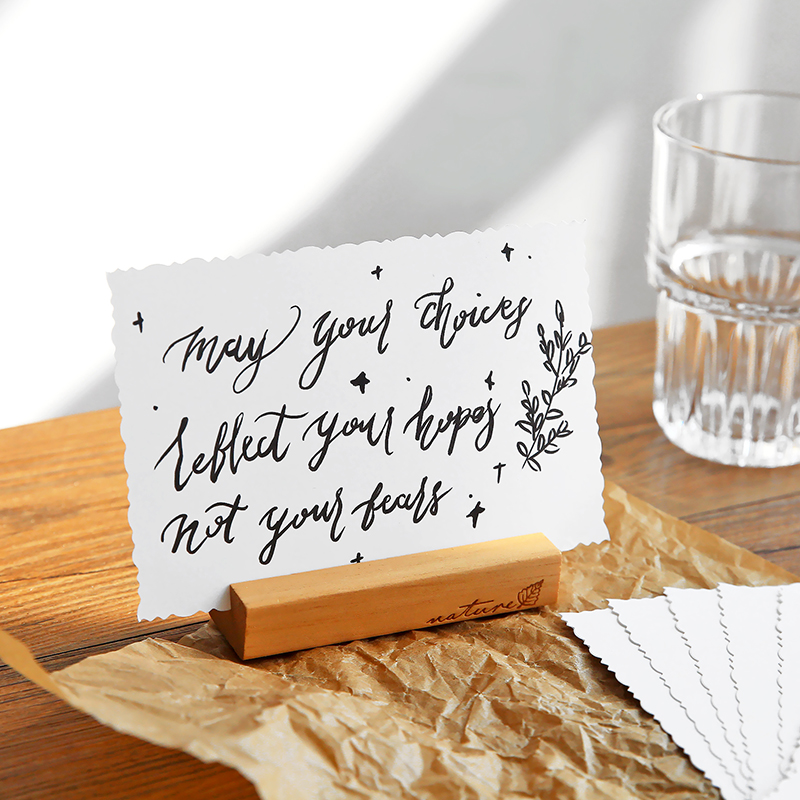 may your choices
reflect your hopes
not your fears
nature